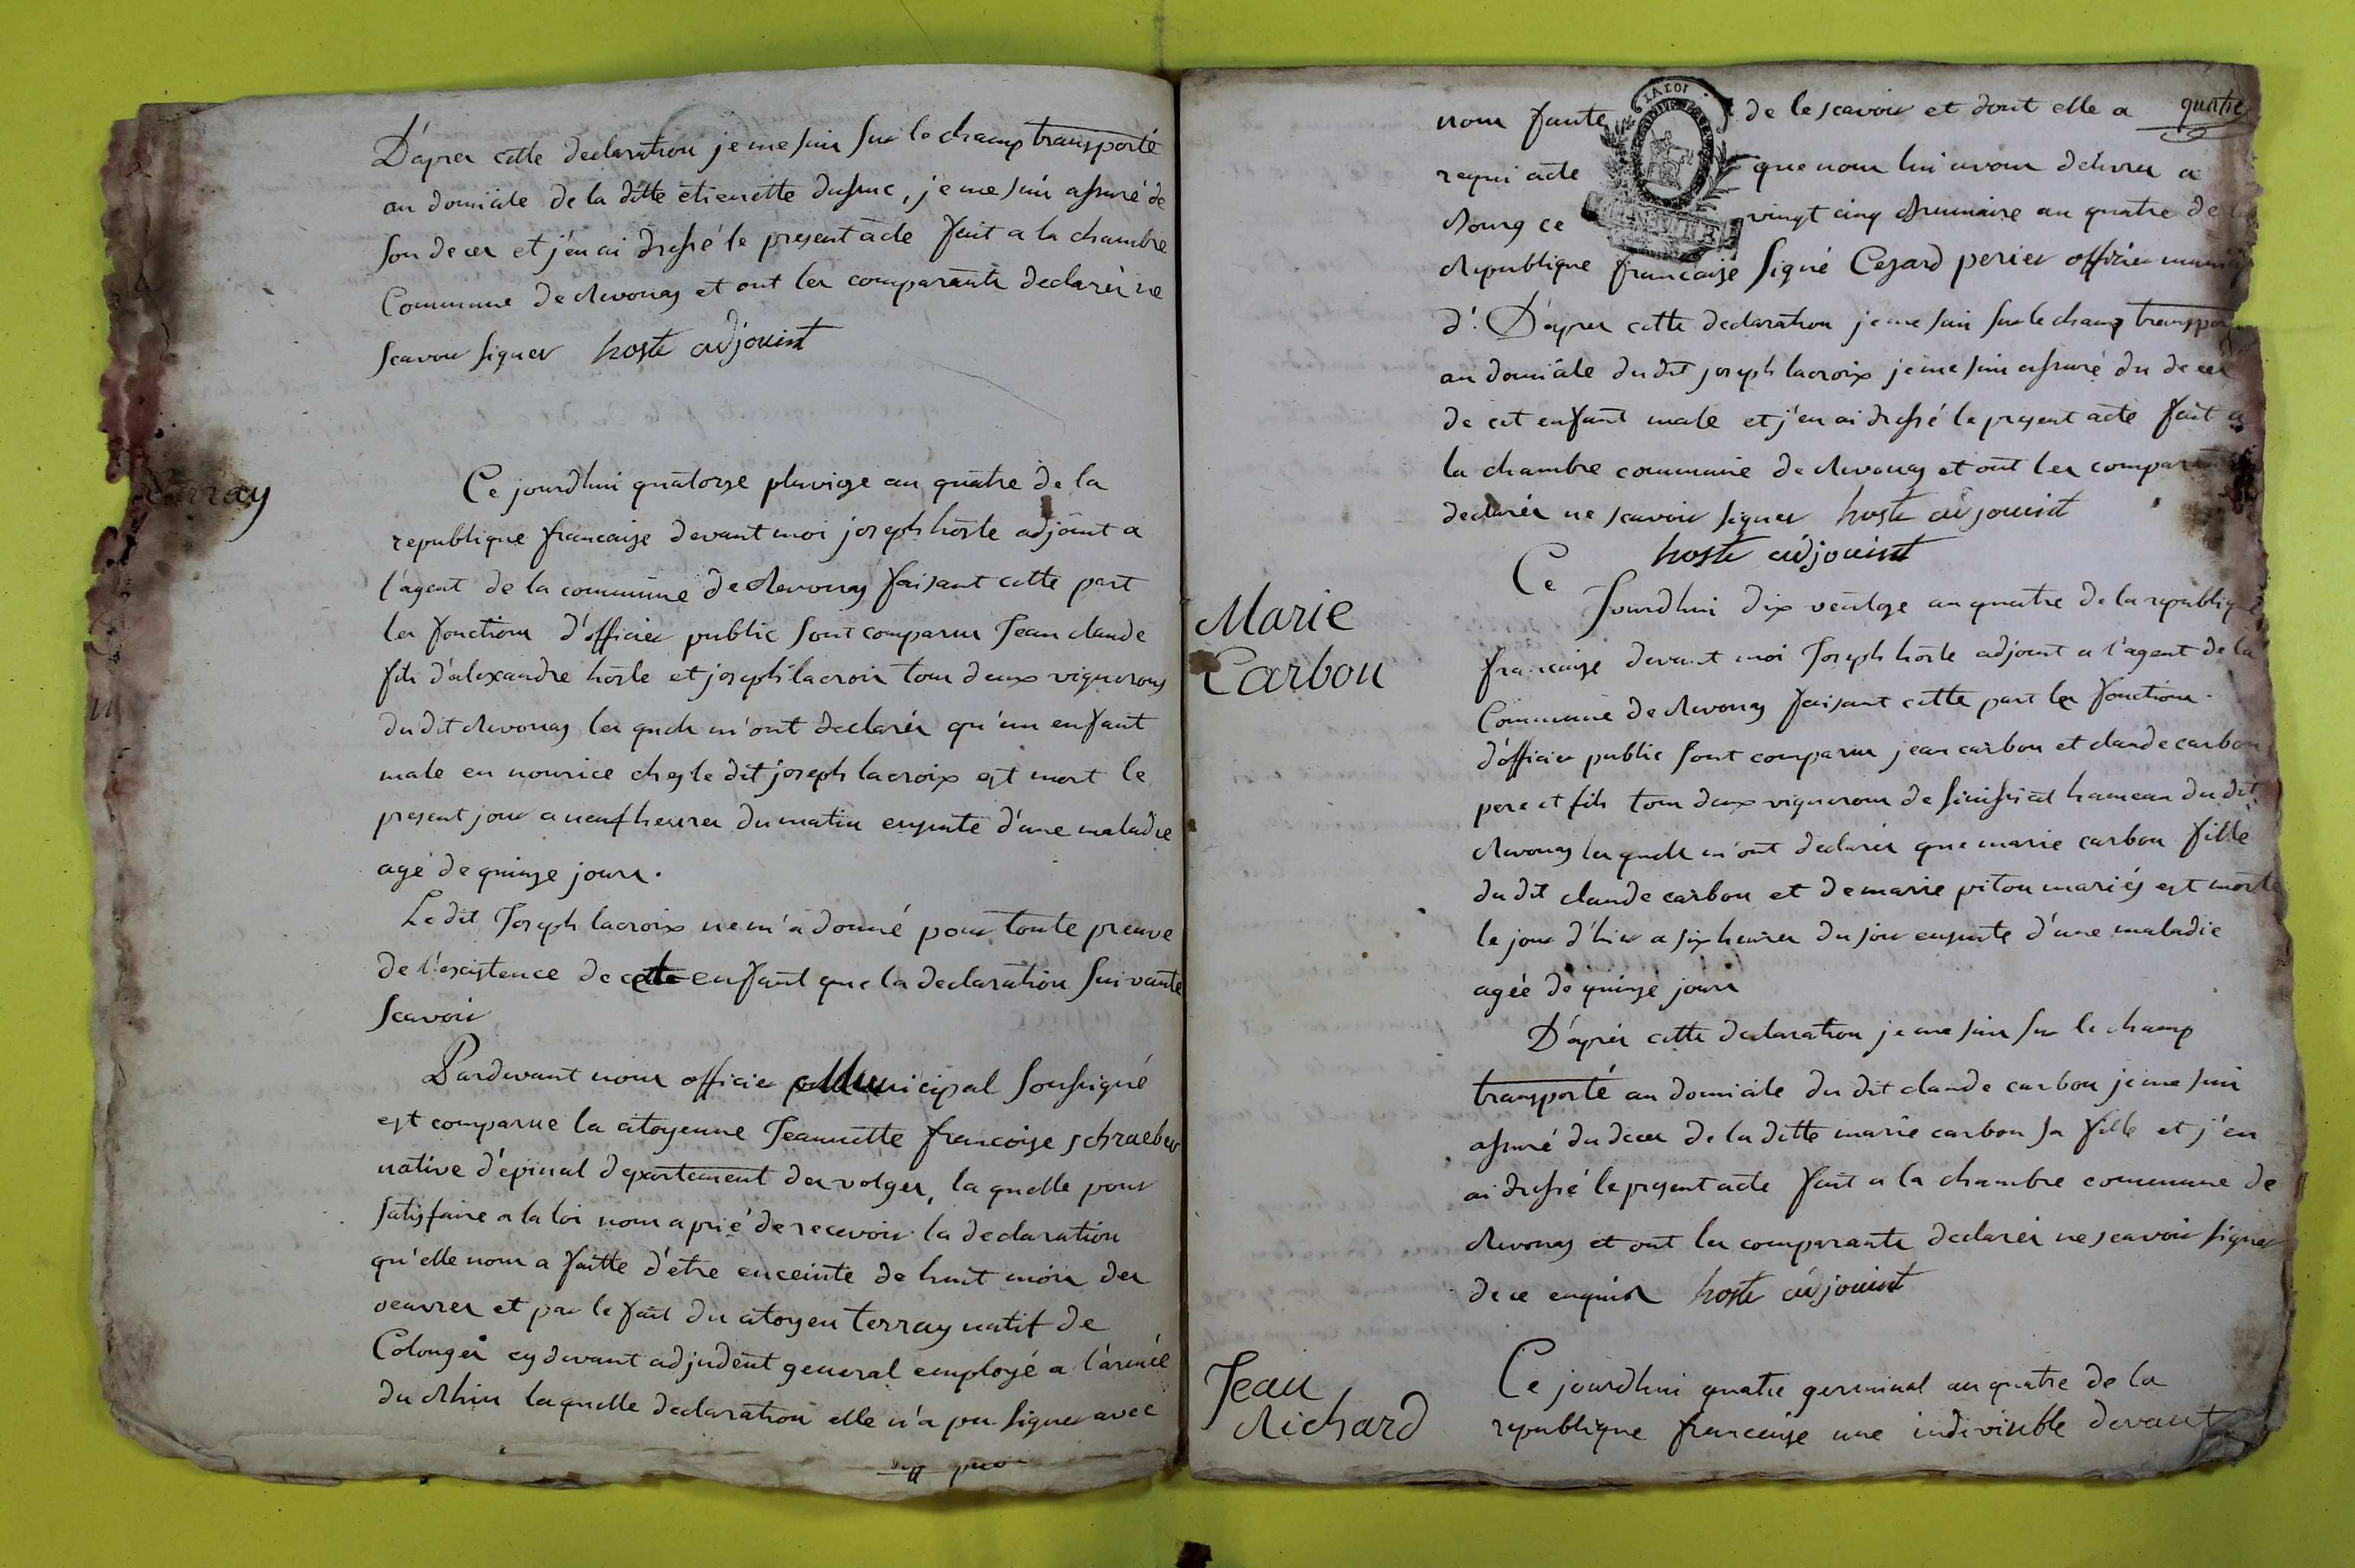 D'apres cette declaration je me suis sur le champ transporté
au domicile de la ditte etienette dusuc, je me suis assuré de
son deces et j'en ai dressé le present acte fait a la chambre
Commune de Revonas et ont les comparants declarés ne
scavoir signer hoste adjouint
terray
Ce jourdhui quatorze pluviose an quatre de la
republique francaise devant moi joseph hoste adjoint a
l'agent de la commune de Revonas faisant cette part
les fonctions d'officier public sont comparus Jean claude
fils d'alexandre hoste et joseph lacroix tous deux vignerons
du dit Revonas les quels m'ont declarés qu'un enfant
male en nourice chez le dit joseph lacroix est mort le
present jour a neuf heures du matin ensuite d'une maladie
agé de quinze jours.
Le dit Joseph lacroix ne m'a donné pour toute preuve
de l'existence de cette enfant que la declaration suivante
scavoir
Pardevant nous officier Municipal soussigné
est comparue la citoyenne Jeannette francoise schraeber
native d'épinal departement des volges, la quelle pour
satisfaire a la loi nous a prié de recevoir la declaration
qu'elle nous a faitte d'etre enceinte de huit mois des
oeuvres et par le fait du citoyen terray natif de
Colonges cy devant adjudent general employé a l'armée
du Rhin laquelle declaration elle n'a pu signer avec
nous faute de le scavoir et dont elle a
quatre
requi acte que nous lui avons delivree a
Bourg ce vingt cinq brumaire an quatre de la
Republique francaise signé Cezard perier officier
d'. D'apres cette declaration je me suis sur le champ
au domicile du dit joseph lacroix je me suis assuré du deces
de cet enfant male et j'en ai dressé le present acte fait a
la chambre commune de Revonas et ont les
declarés ne scavoir signer hoste adjouint
hoste adjouint
Marie
Carbon
Ce
Jourdhui dix ventose an quatre de la republique
francaise devant moi Joseph hoste adjoint a l'agent de la
Commune de Revonas faisant cette part les fonctions
d'officier public sont comparus jean carbon et claude carbon
pere et fils tous deux vignerons de sinissiat hameau du dit
Revonas les quels m'ont declarés que marie carbon fille
du dit claude carbon et de marie pitou mariés est morte
le jour d'hier a six heures du soir ensuite d'une maladie
agée de quinze jours
D'aprés cette declaration je me suis sur le champ
transporté au domicile du dit claude carbon je me suis
assuré du deces de la ditte marie carbon sa fille et j'en
ai dressé le present acte fait a la chambre commune de
Revonas et ont les comparants declarés ne scavoir signer
de ce enquis hoste adjouint
Jean
Richard
Ce jourdhui quatre germinal an quatre de la
republique francaise une indivisible devant